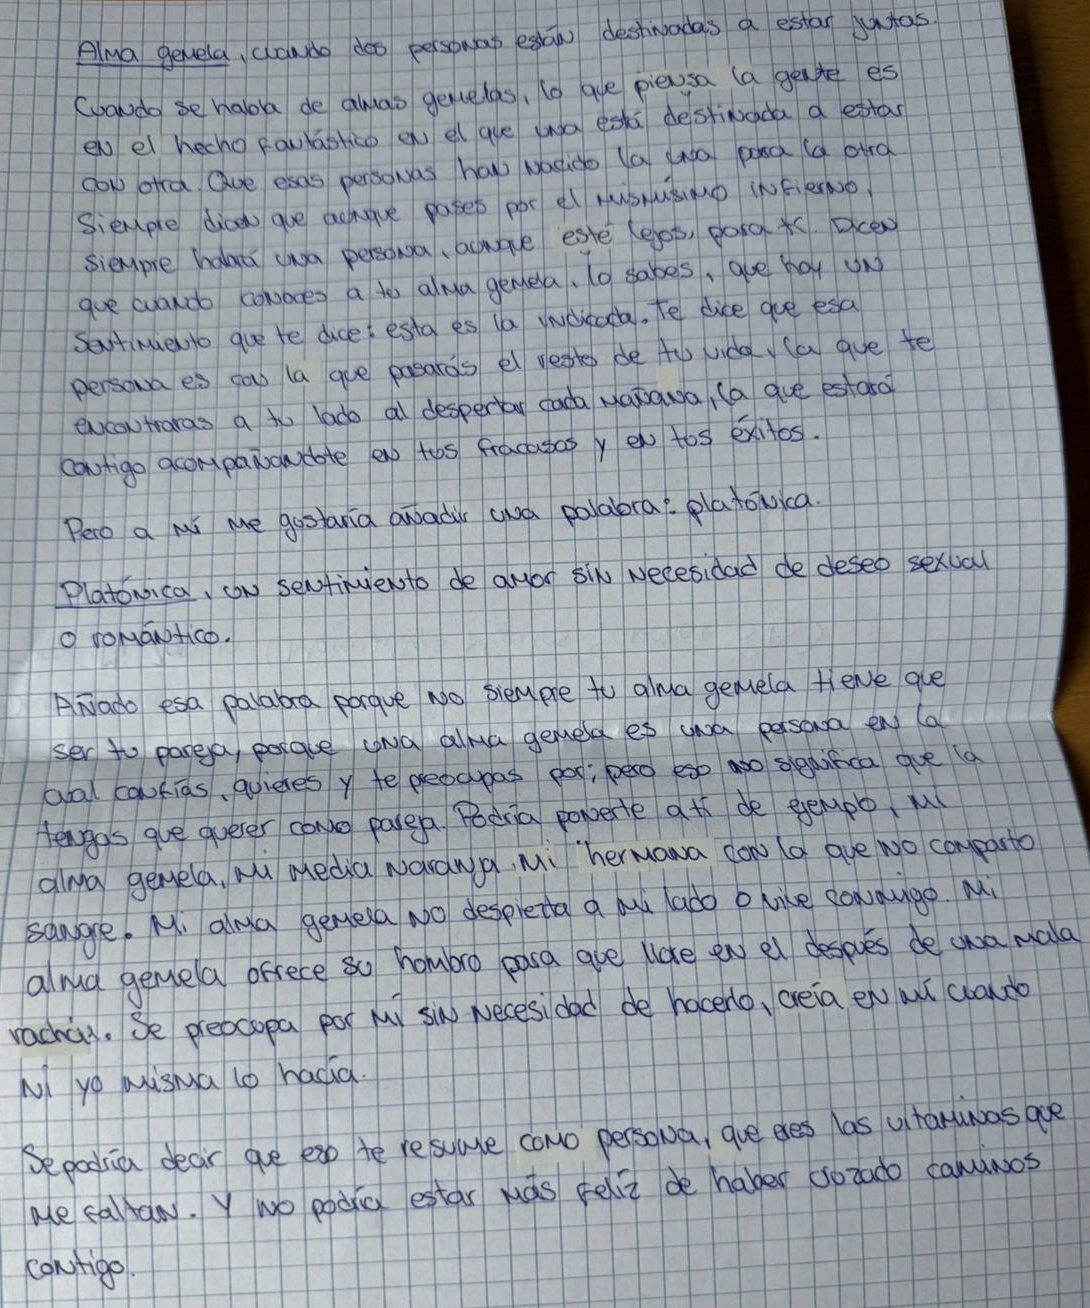 Alma gemela, cuando dos personas están destinadas a estar juntas.
Cuando se habla de almas gemelas, lo que piensa la gente es
en el hecho fantástico en el que una está destinada a estar
con otra. Que esas personas han nacido la una para la otra.
Siempre dicen que aunque pases por el mismísimo infierno,
siempre habrá una persona, aunque esté lejos, para ti. Dicen
que cuando conoces a tu alma gemela, lo sabes, que hay un
sentimiento que te dice: esta es la indicada. Te dice que esa
persona es con la que pasarás el resto de tu vida, la que te
encontraras a tu lado al despertar cada mañana, la que estará
contigo acompañandote en tus fracasos y en tus éxitos.
Pero a mí me gustaría añadir una palabra: platónica.
Platónica, un sentimiento de amor sin necesidad de deseo sexual
o romántico.
Añado esa palabra porque no siempre tu alma gemela tiene que
ser tu pareja, porque una alma gemela es una persona en la
cual confías, quieres y te preocupas por; pero eso no significa que la
tengas que querer como pareja. Podría ponerte a ti de ejemplo, mi
alma gemela, mi media naranja, mi hermana con la que no comparto
sangre. Mi alma gemela no despierta a mi lado o vive conmigo. Mi
alma gemela ofrece su hombro para que llore en el después de una mala
racha. Se preocupa por mí sin necesidad de hacerlo, creía en mí cuando
ni yo misma lo hacía.
Se podría decir que eso te resume como persona, que eres las vitaminas que
me faltan. Y no podría estar más feliz de haber cruzado caminos
contigo.